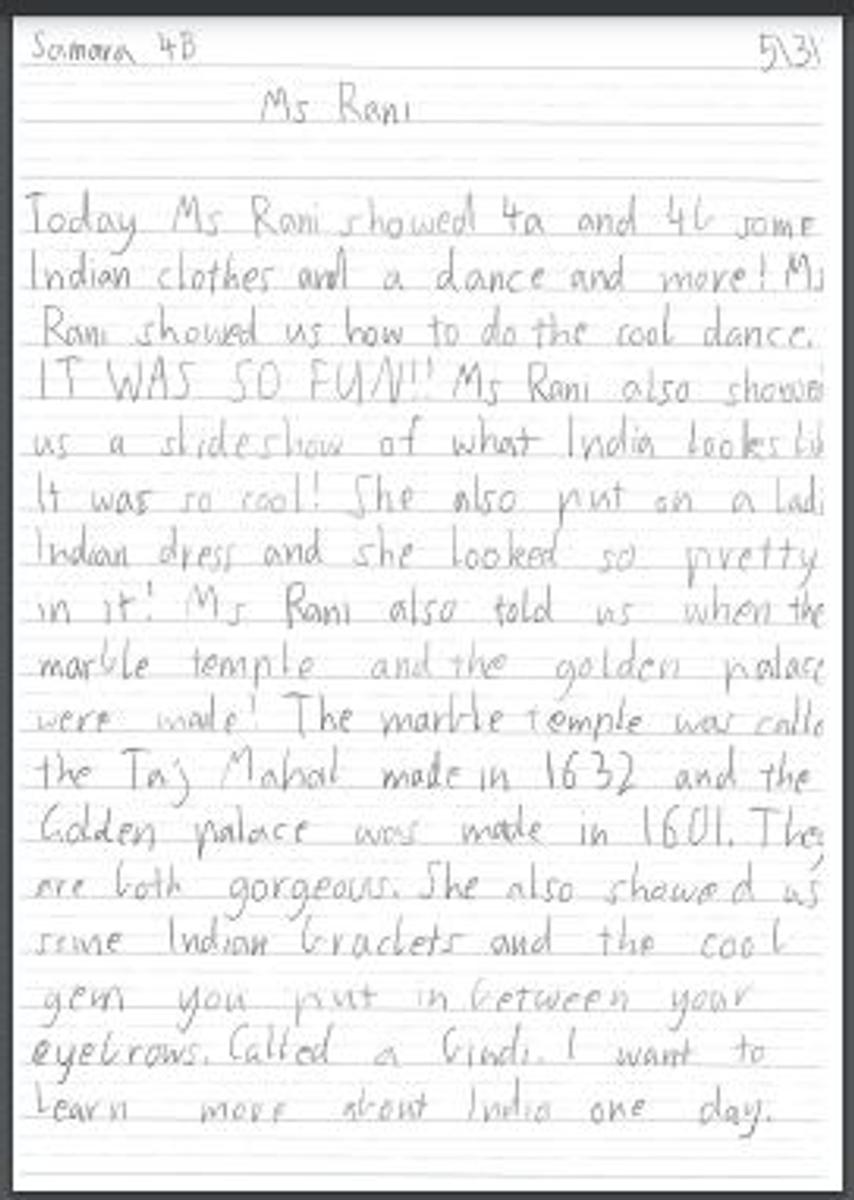 Samara 4B 5\3\
Ms Rani
Today Ms Rani showed 4a and 4b some
Indian clothes and a dance and more! Ms
Rani showed us how to do the cool dance.
IT WAS SO FUN!! Ms Rani also showed
us a slideshow of what India lookes lik
It was so cool! She also put on a ladi
Indian dress and she looked so pretty
in it! Ms Rani also told us when the
marble temple and the golden palace
were made! The marble temple was calle
the Taj Mahal made in 1632 and the
Golden palace was made in 1601. They
are both gorgeous. She also showed us
some Indian braclets and the cool
gem you put in between your
eyebrows. Called a bindi. I want to
learn more about India one day.